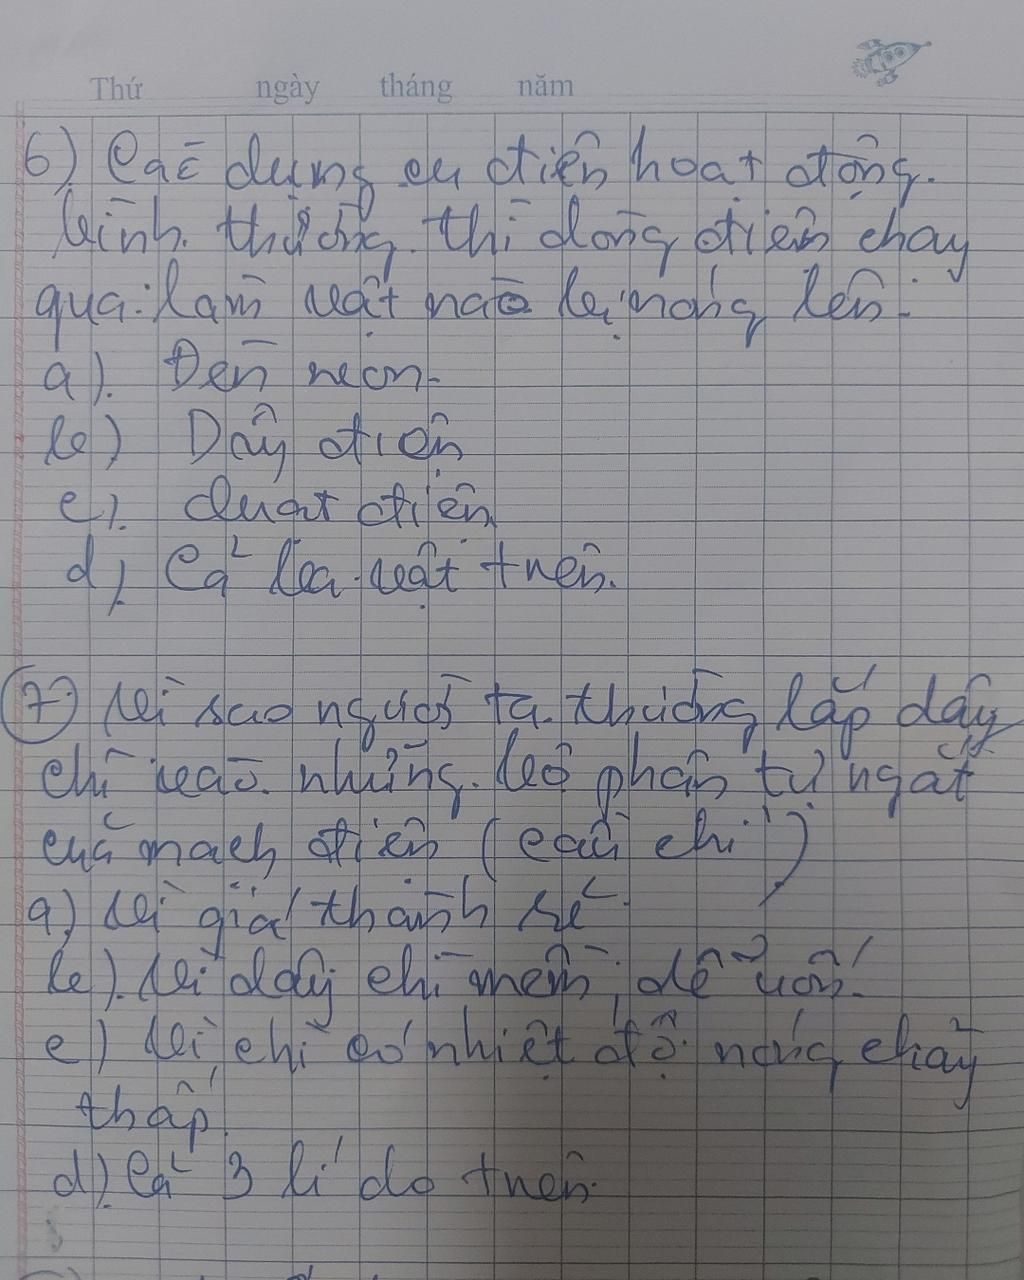 Thứ ngày tháng năm
6) Các dụng cụ điện hoạt động.
bình thường thì dòng điện chạy
qua làm vật nào bị nóng lên:
a). Đèn neon
b) Dây điện
c). Quạt điện
d) Cả ba vật trên.
7) Vì sao người ta thường lắp dây
chì vào những bộ phận tự ngắt
của mạch điện (cầu chì)
a) Vì giá thành rẻ
b). Vì dây chì mềm, dễ uốn.
c) Vì chì có nhiệt độ nóng chảy
thấp.
d) Cả 3 lí do trên.